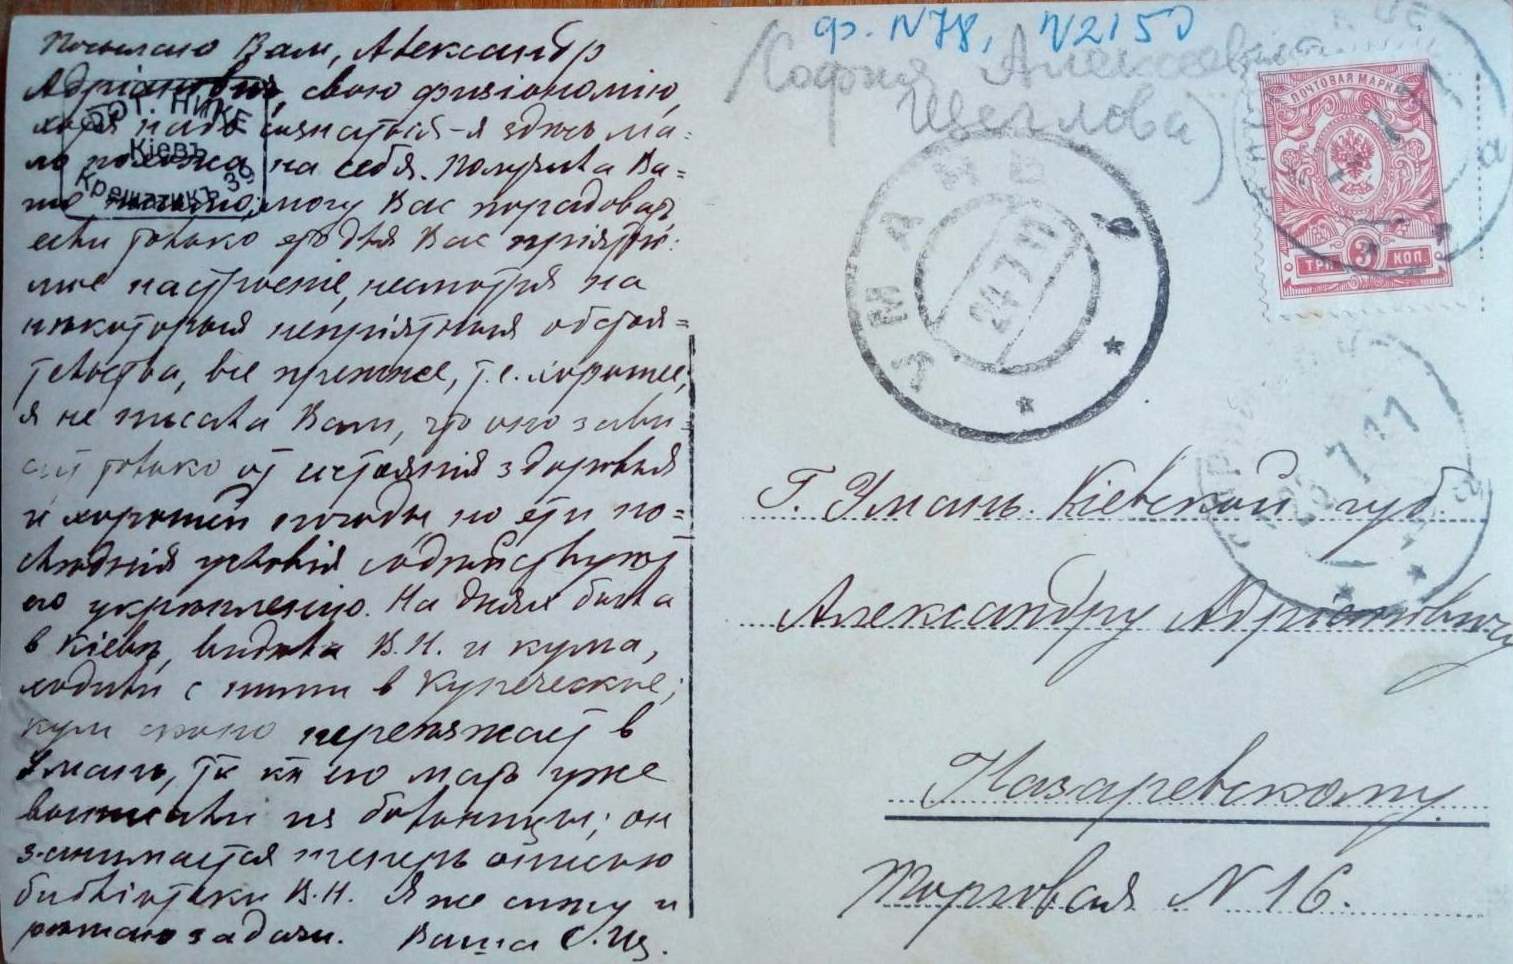 ф. N 78, N 2150
(София Алексеевна
Щеглова)
Посылаю Вам, Александр
Адріанович, свою физіономію,
хотя надо сознаться - я здесь ма=
ло похожа на себя. Получила Ва=
ше письмо, могу Вас порадовать,
если только это для Вас пріятно:
мое настроеніе, несмотря на
некоторыя непріятныя обстоя=
тельства, все прежнее, т.е. хорошее;
я не писала Вам, что оно зави=
сит только от состоянія здоровья
и хорошей погоды, но эти по=
следнія условія содействуют
его укрепленію. На днях была
в Кіеве, видела В.Н. и кума,
ходили с ними в Купеческое;
кум скоро переезжает в
Умань, т.к. его мать уже
выписали из больницы; он
занимается теперь описью
библіотеки В.Н. Я же сижу и
решаю задачи. Ваша С.Щ.
ФОТ. НИКЕ
Кіевъ
Крещатикъ 39
УМАНЬ
24 7 11
ПОЧТОВАЯ МАРКА
3
ТРИ КОП.
7 11
Г. Умань Кіевской губ.
Александру Адріановичу
Назаревскому
Торговая N 16.